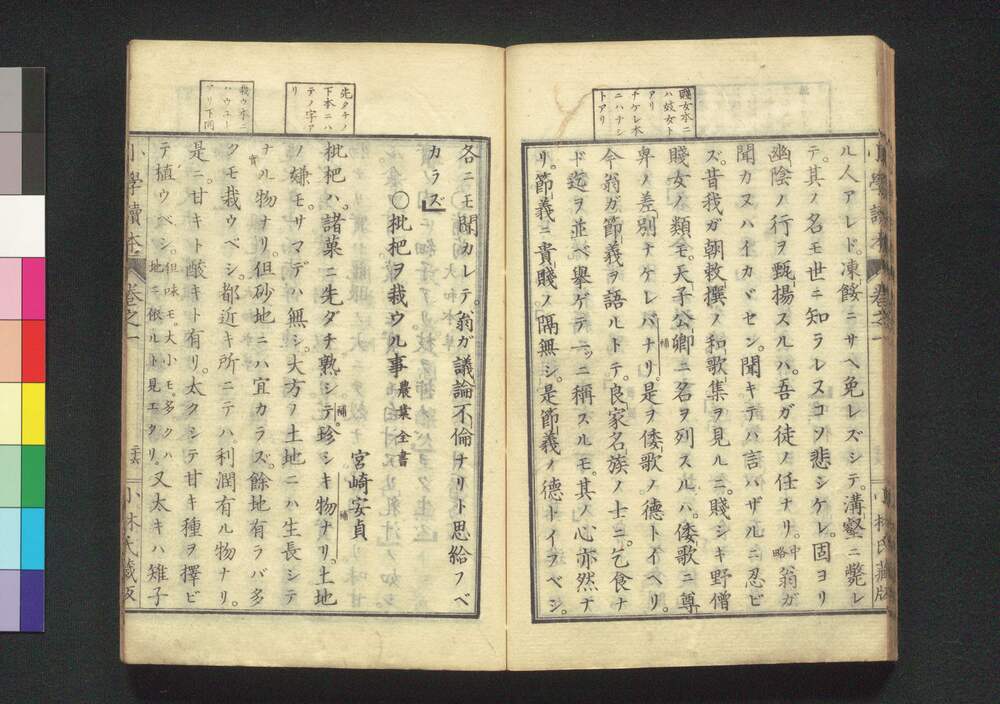 賤女本ニ
ハ妓女ト
アリ
チケレ本
ニハナシ
トアリ
ル人アレド。凍餒ニサヘ免レズシテ。溝壑ニ斃レ
テ。其ノ名モ世ニ知ラレヌコソ悲シケレ。固ヨリ
幽陰ノ行ヲ甄揚スルハ。吾ガ徒ノ任ナリ。中略翁ガ
聞カヌハイカヾセン。聞キテハ言ハザルニ忍ビ
ズ。昔我ガ朝敕撰ノ和歌集ヲ見ルニ。賤シキ野僧
賤女ノ類モ。天子公卿ニ名ヲ列スルハ。倭歌ニ尊
卑ノ差別ナケレバナリ。補是ヲ倭歌ノ德トイヘリ。
今翁ガ節義ヲ語ルトテ。良家名族ノ士ニ。乞食ナ
ド迄ヲ並ベ擧ゲテ一ニッニ稱スルモ。其ノ心亦然ナ
リ。節義ニ貴賤ノ隔無シ。是節義ノ德トイフベシ。
小學讀本 卷之一
小林氏藏版
先タチノ
下本ニハ
テノ字ア
リ
栽ウ本ニ
ハウユト
アリ下同
各ニモ聞カレテ。翁ガ議論不倫ナリト思給フベ
カラズ
〇枇杷ヲ栽ウル事 農業全書
宮崎安貞
枇杷ハ。諸菓ニ先ダチ熟シテ補。珍シキ物ナリ。補土地
ノ嫌モサマデハ無シ。大方ノ土地ニハ生長シテ
實ナル物ナリ。但砂地ニハ宜カラズ。餘地有ラバ多
クモ栽ウベシ。都近キ所ニテハ。利潤有ル物ナリ。
是ニ甘キト酸キト有リ。太クシテ甘キ種ヲ擇ビ
テ植ウベシ。但味モ。大小モ。多クハ地ニ依ルト見エタリ。又太キハ雉子
小學讀本 卷之一
小林氏藏版